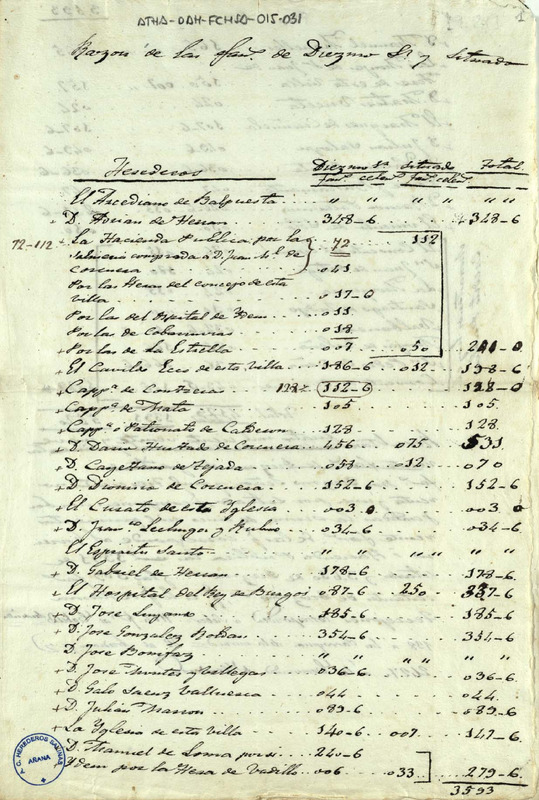 ATHA-DAH-FCHSA-015-031
1
Razon de las fan.s de Diezmo S.n y Situado
Herederos Diezmo S.n Situado Total
fan.s celem. fan.s celem.
El Arcediano de Balpuesta .. " " " " " "
+ D. Adrian de Herran 348-6 348-6
72-112 + La Hacienda Publica por la 72 112
Salinería comprada á D. Juan M.l de
Corcuera 041
Por las Heras del concejo de esta
villa 017-0
Por las del Ospital de Ydem 011
Por las de Cabannias 018
+ Por las de La Estrella 007 050 0
+ El Cavildo Ecc.o de esta Villa 186-6 012 198-6
+ Capp.a de Contreras 128= 112-6 128-0
+ Capp.a de Mata 105 105
+ Capp.a o Patronato de Calderon 128 128
+ D. Dario Hurtado de Corcuera 456 075 531
+ D. Cayetano de Tejada 058 012 070
+ D. Dionisia de Corcuera 152-6 152-6
+ El Curato de esta Yglesia 003 0 003 0
+ D. Fran.co Luengos y Rubio 034-6 034-6
El Espiritu Santo " " " " " "
+ D. Gabriel de Herran 178-6 178-6
+ El Hospital del Rey de Burgos 087-6 250 337-6
+ D. Jose Luyano 185-6 185-6
+ D. Jose Gonzalez Boban 354-6 354-6
D. Jose Bonifaz " " " " " "
+ D. Jose Montes y Villegas 036-6 036-6
+ D. Galo Saenz Valluerca 044 044
+ D. Julian Marron 089-6 089-6
+ La Yglesia de esta villa 140-6 007 147-6
D. Manuel de Loma por si 240-6
Ydem por la Hera de Vadillo 006 033 279-6
3593
P.C. HEREDEROS SALINAS
ARANA